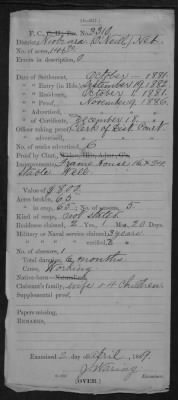 F. C., No. 2310
District, Niobrara (O'Neill) Neb.
No. of acres,
Errors in description, 0
Date of Settlement, October 1881
" Entry (in Hds.), September 19, 1882
" Residence, October 1881.
" Proof, November 9, 1886.
" " Advertised,
" of Certificate, December 18.
Officer taking proof, Clerk of Dist. Court
" advertised,
No. of weeks advertised, 6
Proof by Clmt.,
Improvements, Frame house
Stable Well
Value of $ 800.
Acres broken, 65
" in crop, 65; No. of seasons, 5.
Kind of crop, not stated
Residence claimed, 2 Yrs., 1 Mo., 20 Days.
Military or Naval service claimed, 3 years.
" " " verified,
No. of absences, 1
Total duration, 6 months
Cause, Working
Native-born
Claimant's family, wife & 4 children
Supplemental proof,
Papers missing,
Remarks,
Examined 2 day of April, 1889.
J. Waring
Examiner.
(OVER.)